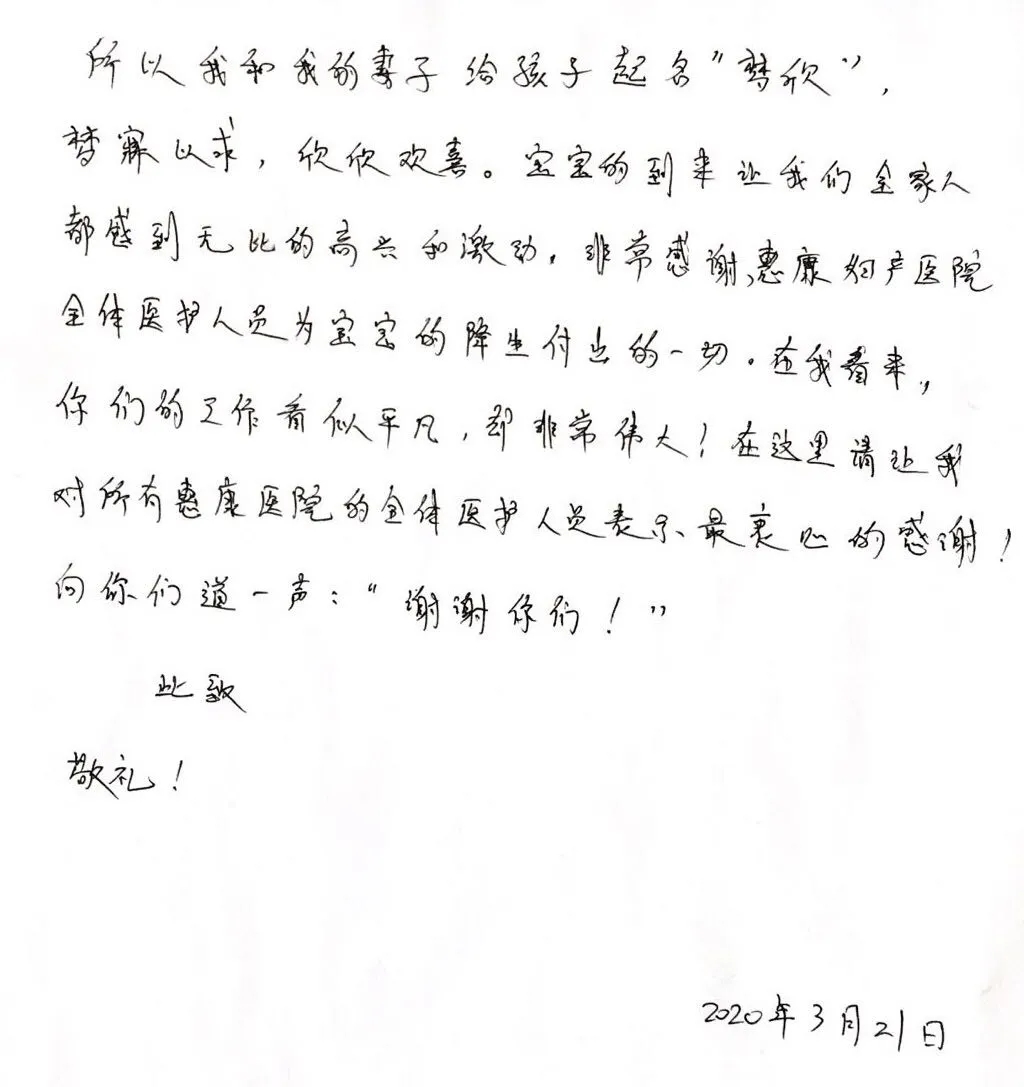 所以我和我的妻子给孩子起名“梦欣”，
梦寐以求，欣欣欢喜。宝宝的到来让我们全家人
都感到无比的高兴和激动。非常感谢惠康妇产医院
全体医护人员为宝宝的降生付出的一切。在我看来，
你们的工作看似平凡，却非常伟大！在这里请让我
对所有惠康医院的全体医护人员表示最衷心的感谢！
向你们道一声：“谢谢你们！”
此致
敬礼！
2020年3月21日